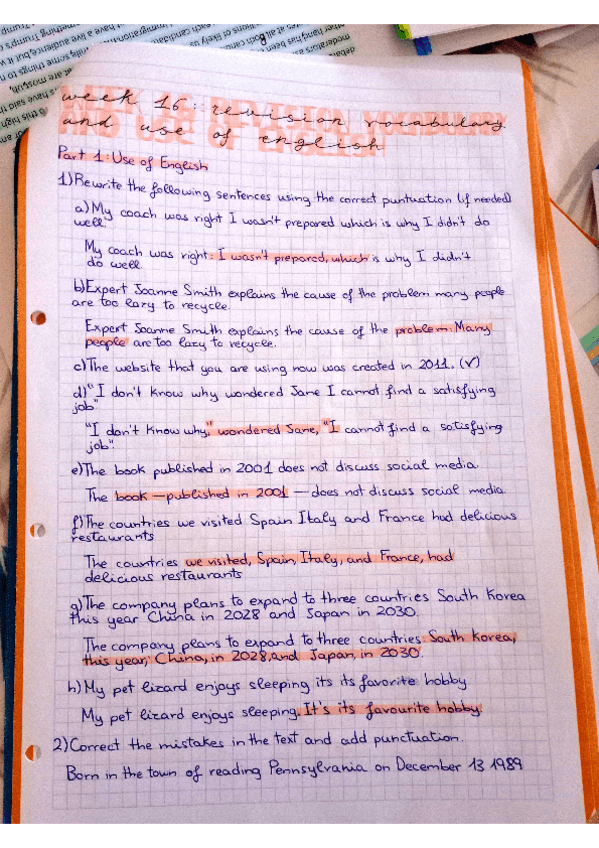 week 16: revision vocabulary
and use of english
Part 1: Use of English
1) Rewrite the following sentences using the correct puntuation (if needed)
a) My coach was right I wasn't prepared which is why I didn't do
well
My coach was right: I wasn't prepared, which is why I didn't
do well.
b) Expert Joanne Smith explains the cause of the problem many people
are too lazy to recycle.
Expert Joanne Smith explains the cause of the problem: Many
people are too lazy to recycle.
c) The website that you are using now was created in 2011. (✓)
d) "I don't know why wondered Jane I cannot find a satisfying
job"
"I don't know why," wondered Jane, "I cannot find a satisfying
job".
e) The book published in 2001 does not discuss social media.
The book —published in 2001 — does not discuss social media
f) The countries we visited Spain Italy and France had delicious
restaurants
The countries we visited, Spain, Italy, and France, had
delicious restaurants
g) The company plans to expand to three countries South Korea
this year China in 2028 and Japan in 2030.
The company plans to expand to three countries: South Korea,
this year; China, in 2028, and Japan, in 2030.
h) My pet lizard enjoys sleeping its its favorite hobby
My pet lizard enjoys sleeping. It's its favourite hobby.
2) Correct the mistakes in the text and add punctuation.
Born in the town of reading Pennsylvania on December 13 1989